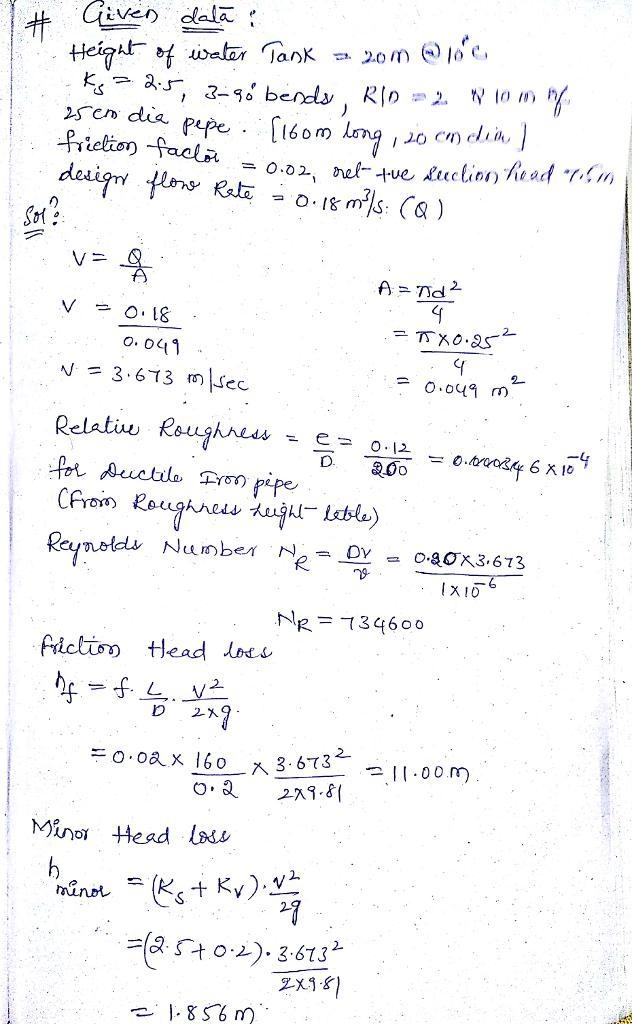 # Given data :
Height of water Tank = 20m @ 10°C
Ks = 2.5, 3-90° bends, R/D = 2 10 m of
25 cm dia pepe. [160m long, 20 cm dia]
friction factor = 0.02, net +ve suction head 7.5m
design flow Rate = 0.18 m³/s. (Q)
Sol?:
V = Q/A
A = πd²/4
V = 0.18/0.049
= π×0.25²/4
V = 3.673 m/sec
= 0.049 m²
Relative Roughness = e/D = 0.12/200 = 0.000346×10⁻⁴
for Ductile Iron pipe
(From Roughness height table)
Reynolds Number N_R = DV/ν = 0.20×3.673/1×10⁻⁶
N_R = 734600
friction Head loss
h_f = f. L/D. V²/2×g.
= 0.02 × 160/0.2 × 3.673²/2×9.81 = 11.00m.
Minor Head loss
h minor = (Ks + Kv). V²/2g
= (2.5 + 0.2). 3.673²/2×9.81
= 1.856m